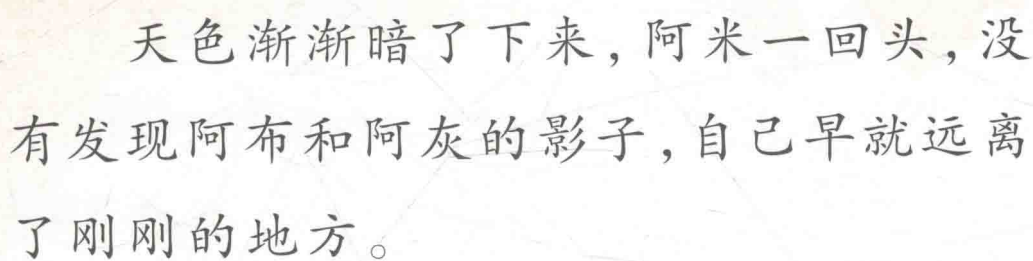 天色渐渐暗了下来，阿米一回头，没
有发现阿布和阿灰的影子，自己早就远离
了刚刚的地方。